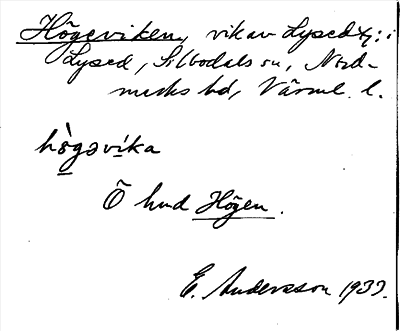 Högeviken, vik av Lysedtj: i
Lysed, Silbodals sn, Nord-
marks hd, Värml. l.
hògəvíka
Ö hmd Högen.
E. Andersson 1933.